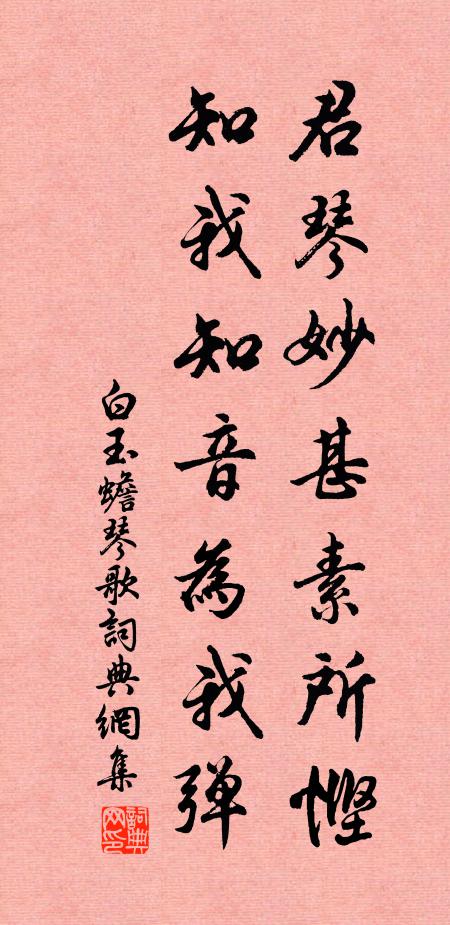 君琴妙甚素所慳
知我知音為我弾
白玉蟾琴歌詞典網集
詞典网印